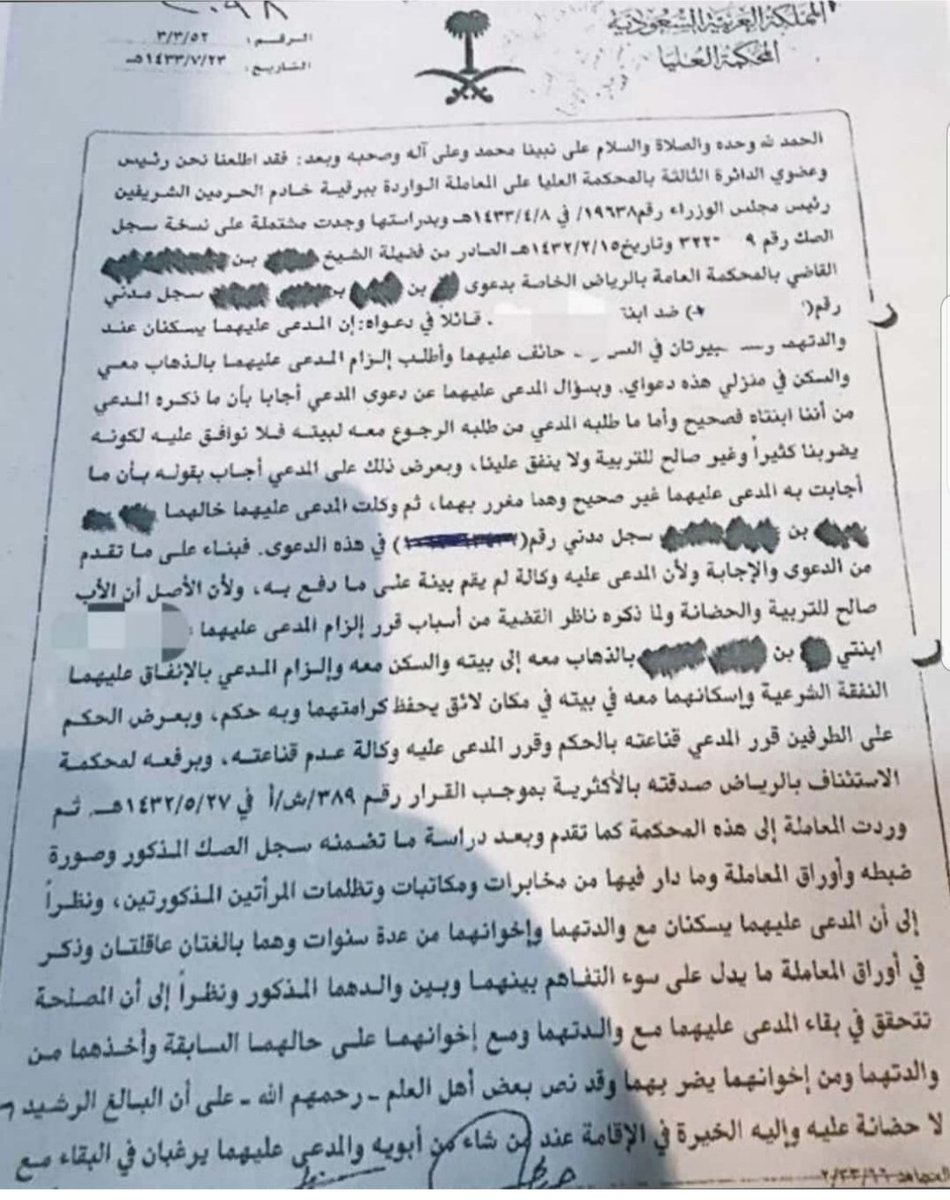 ١٠٩٨
المملكة العربية السعودية
المحكمة العليا
الرقم: ٣/٣/٥٢
التاريخ: ١٤٣٣/٧/٢٣هـ
الحمد لله وحده والصلاة والسلام على نبينا محمد وعلى آله وصحبه وبعد: فقد اطلعنا نحن رئيس
وعضوي الدائرة الثالثة بالمحكمة العليا على المعاملة الواردة ببرقية خادم الحرمين الشريفين
رئيس مجلس الوزراء رقم ١٩٦٣٨/ في ١٤٣٣/٤/٨هـ وبدراستها وجدت مشتملة على نسخة سجل
الصك رقم ٩ ٣٢٢ وتاريخ ١٤٣٢/٢/١٥هـ الصادر من فضيلة الشيخ بن
القاضي بالمحكمة العامة بالرياض الخاصة بدعوى بن بن سجل مدني
رقم( ) ضد . قائلا في دعواه: إن المدعى عليهما يسكنان عند
والدتهما في خائف عليهما وأطلب إلزام المدعى عليهما بالذهاب معي
والسكن في منزلي هذه دعواي. وبسؤال المدعى عليهما عن دعوى المدعي أجابا بأن ما ذكره المدعي
من أننا ابنتاه فصحيح وأما ما طلبه المدعي من طلبه الرجوع معه لبيته فلا نوافق عليه لكونه
يضربنا كثيراً وغير صالح للتربية ولا ينفق علينا، وبعرض ذلك على المدعي أجاب بقوله بأن ما
أجابت به المدعى عليهما غير صحيح وهما مغرر بهما، ثم وكلت المدعى عليهما خالهما
بن سجل مدني رقم( ) في هذه الدعوى. فبناء على ما تقدم
من الدعوى والإجابة ولأن المدعى عليه وكالة لم يقم بينة على ما دفع به، ولأن الأصل أن الأب
صالح للتربية والحضانة ولما ذكره ناظر القضية من أسباب قرر إلزام المدعى عليهما:
ابنتي بن بالذهاب معه إلى بيته والسكن معه وإلزام المدعي بالإنفاق عليهما
النفقة الشرعية وإسكانهما معه في بيته في مكان لائق يحفظ كرامتهما وبه حكم، وبعرض الحكم
على الطرفين قرر المدعي قناعته بالحكم وقرر المدعى عليه وكالة عدم قناعته، وبرفعه لمحكمة
الاستئناف بالرياض صدقته بالأكثرية بموجب القرار رقم ٣٨٩/ش/أ في ١٤٣٢/٥/٢٧هـ. ثم
وردت المعاملة إلى هذه المحكمة كما تقدم وبعد دراسة ما تضمنه سجل الصك المذكور وصورة
ضبطه وأوراق المعاملة وما دار فيها من مخابرات ومكاتبات وتظلمات المرأتين المذكورتين، ونظراً
إلى أن المدعى عليهما يسكنان مع والدتهما وإخوانهما من عدة سنوات وهما بالغتان عاقلتان وذكر
في أوراق المعاملة ما يدل على سوء التفاهم بينهما وبين والدهما المذكور ونظراً إلى أن المصلحة
تتحقق في بقاء المدعى عليهما مع والدتهما ومع إخوانهما على حالهما السابقة وأخذهما من
والدتهما ومن إخوانهما يضر بهما وقد نص بعض أهل العلم ـ رحمهم الله ـ على أن البالغ الرشيد
لا حضانة عليه وإليه الخيرة في الإقامة عند من شاء من أبويه والمدعى عليهما يرغبان في البقاء مع